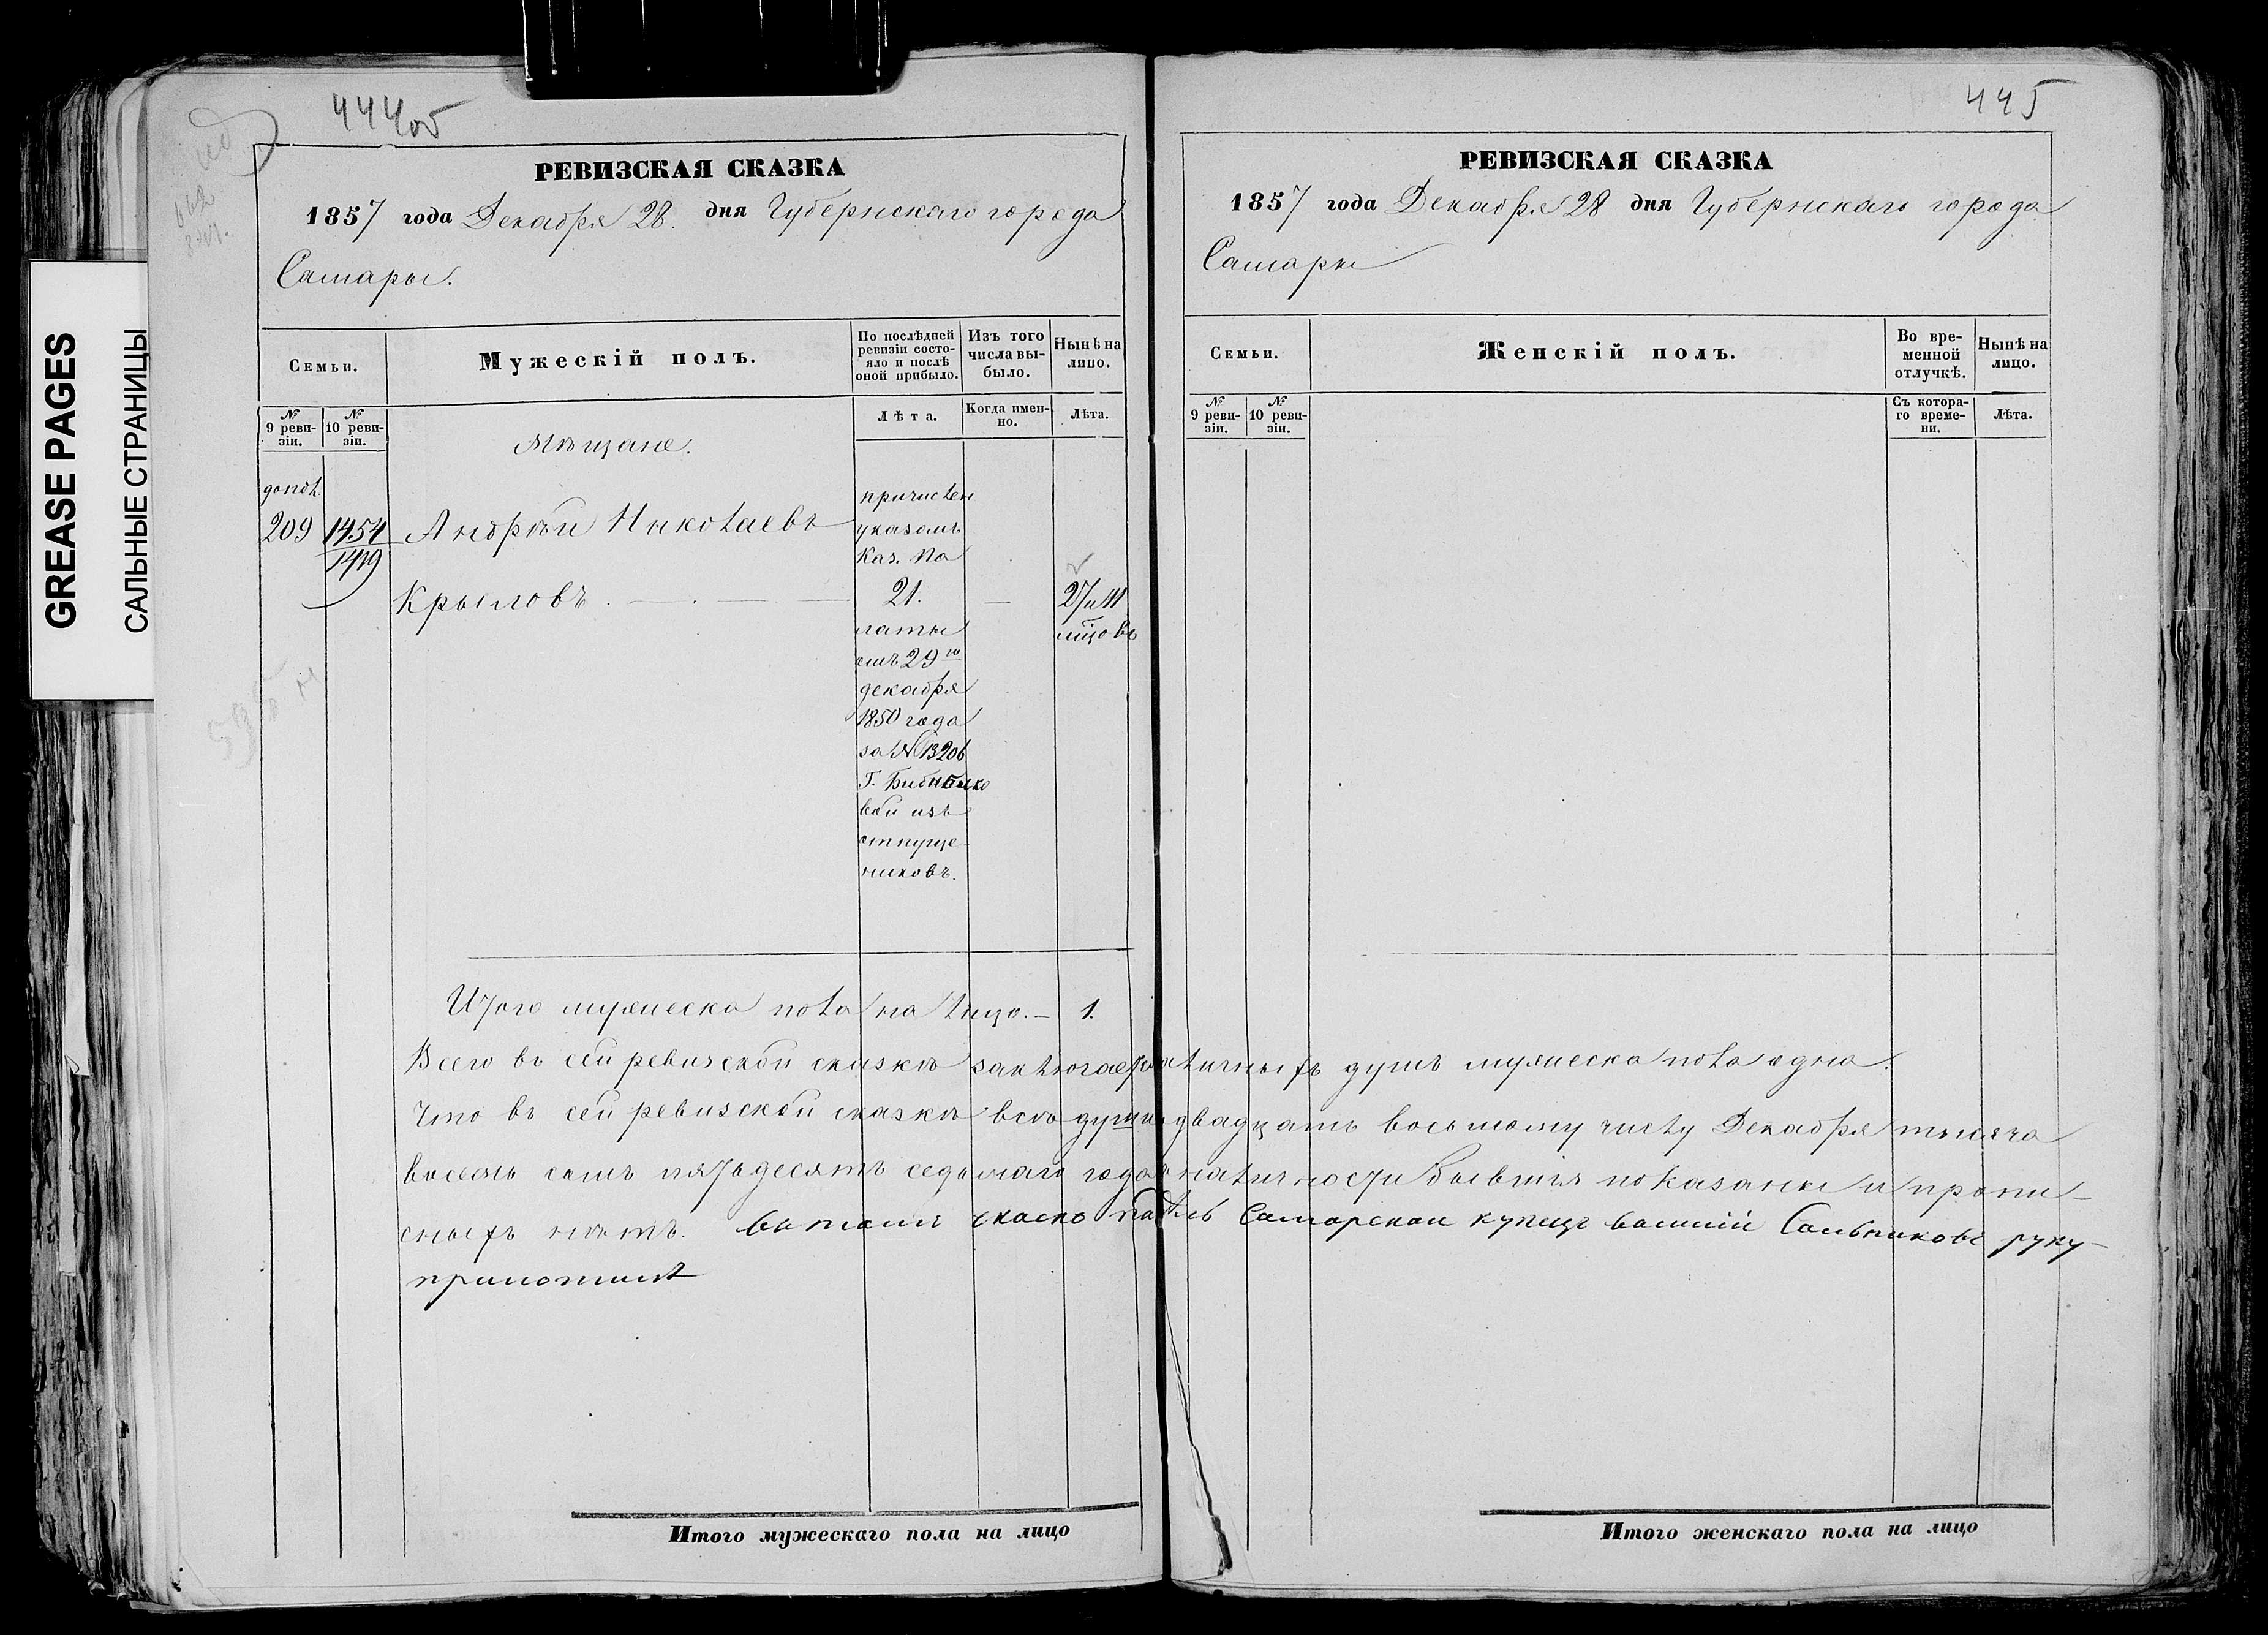 444 об
РЕВИЗСКАЯ СКАЗКА
1857 года Декабря 28. дня Губернскаго города
Самары.
Семьи.
Мужескій полъ.
По послѣдней ревизіи состо-
яло и послѣ
оной прибыло.
Изъ того
числа вы-
было.
Нынѣ на
лицо.
№
9 реви-
зіи.
№
10 реви-
зіи.
Лѣта.
Когда имен-
но.
Лѣта.
Мѣщане.
допол.
209
1454
1419
Андрей Николаевъ
Крыловъ.
причислен
указомъ
Каз. Па
21.
латы
отъ 29го
декабря
1850 года
за № 13206
Г. Бибико
вой изъ
отпуще-
никовъ.
—
27 и 11
мцовъ
Итого мужеска пола на лицо. — 1.
Всего въ сей ревизской сказкѣ заключается наличныхъ душъ мужеска пола одна.
Что въ сей ревизской сказкѣ всѣ души къ двадцать восьмому числу Декабря тысяча
восемь сотъ пятьдесятъ седьмаго года въ наличности бывшія показаны и пропи-
сныхъ нѣтъ. Самарскои купецъ руку
приложилъ
Итого мужескаго пола на лицо
445
РЕВИЗСКАЯ СКАЗКА
1857 года Декабря 28 дня Губернскаго города
Самары
Семьи.
Женскій полъ.
Во вре-
менной
отлучкѣ.
Нынѣ на
лицо.
№
9 реви-
зіи.
№
10 реви-
зіи.
Съ котора-
го време-
ни.
Лѣта.
Итого женскаго пола на лицо
GREASE PAGES
САЛЬНЫЕ СТРАНИЦЫ